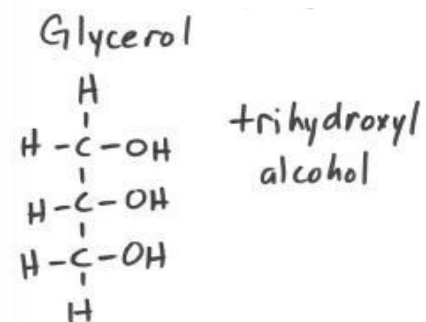 Glycerol
H
H-C-OH
H-C-OH
H-C-OH
H
trihydroxyl
alcohol